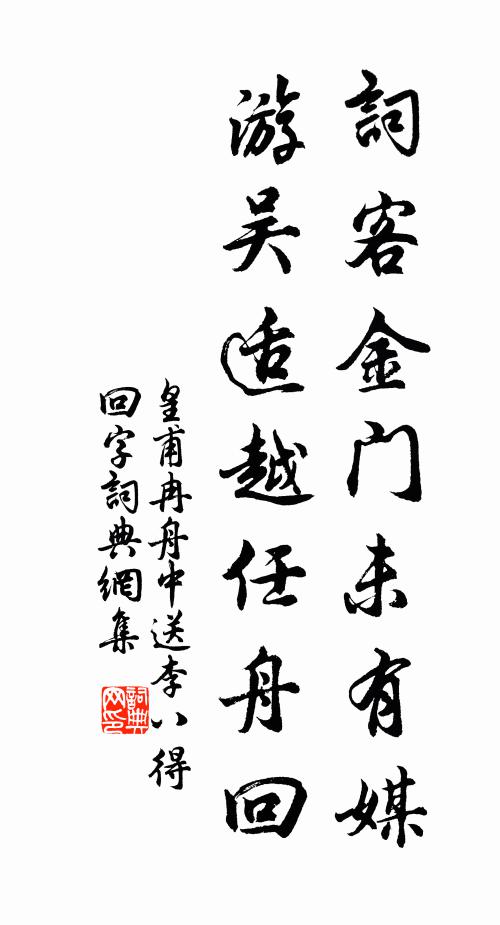 詞客金门未有媒
游吴适越任舟回
皇甫冉舟中送李八得
回字詞典網集
詞典网印